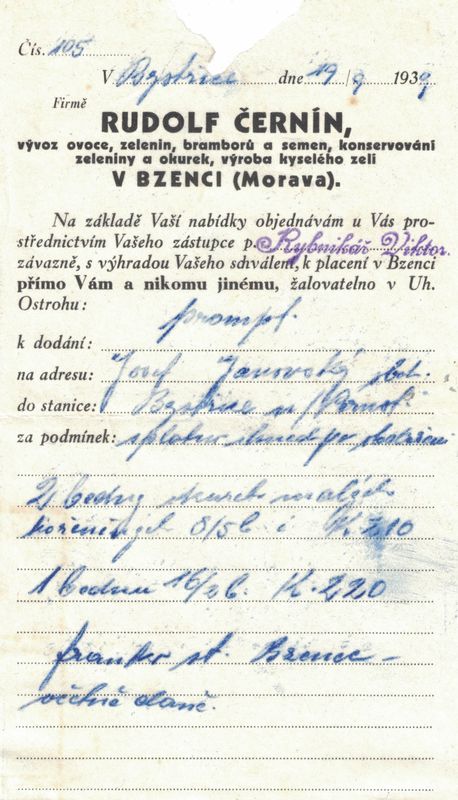 Čís. 105
V Bystřice dne 19/9 1939
Firmě
RUDOLF ČERNÍN,
vývoz ovoce, zelenin, bramborů a semen, konservování
zeleniny a okurek, výroba kyselého zelí
V BZENCI (Morava).
Na základě Vaší nabídky objednávám u Vás pro-
střednictvím Vašeho zástupce p. Rybnikář Viktor.
závazně, s výhradou Vašeho schválení, k placení v Bzenci
přímo Vám a nikomu jinému, žalovatelno v Uh.
Ostrohu:
k dodání: prompt.
na adresu: Josef Janovský
do stanice: Bystřice
za podmínek: ihned po
2 bedny okurek malých
kořeněných 8/5 á K 210
1 bednu K. 220
franko st. Bzenec -
včetně daně.